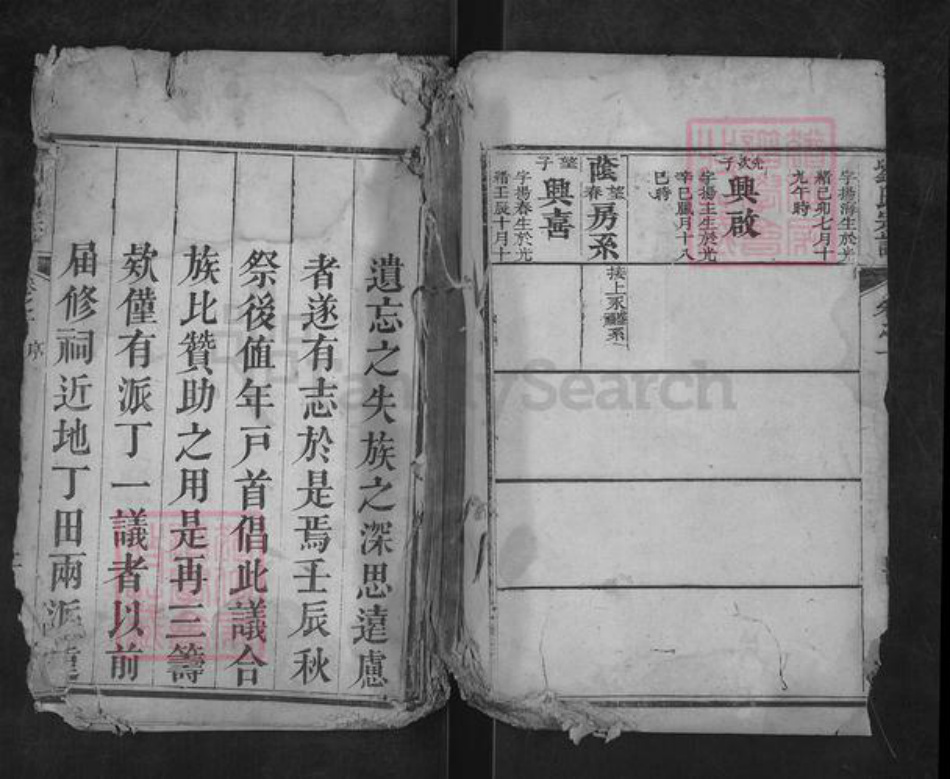 字揚海生於光
緒己卯七月十
九午時
光次子
興啟
字揚主生於光
辛巳臘月十八
巳時
蔭春房系
接上永
望子
興喜
字揚春生於光
緒壬辰十月十
遺忘之失族之深思遠慮
者遂有志於是焉壬辰秋
祭後值年戸首倡此議合
族比贊助之用是再三籌
欵僅有派丁一議者以前
届修祠近地丁田兩派
序
FamilySearch